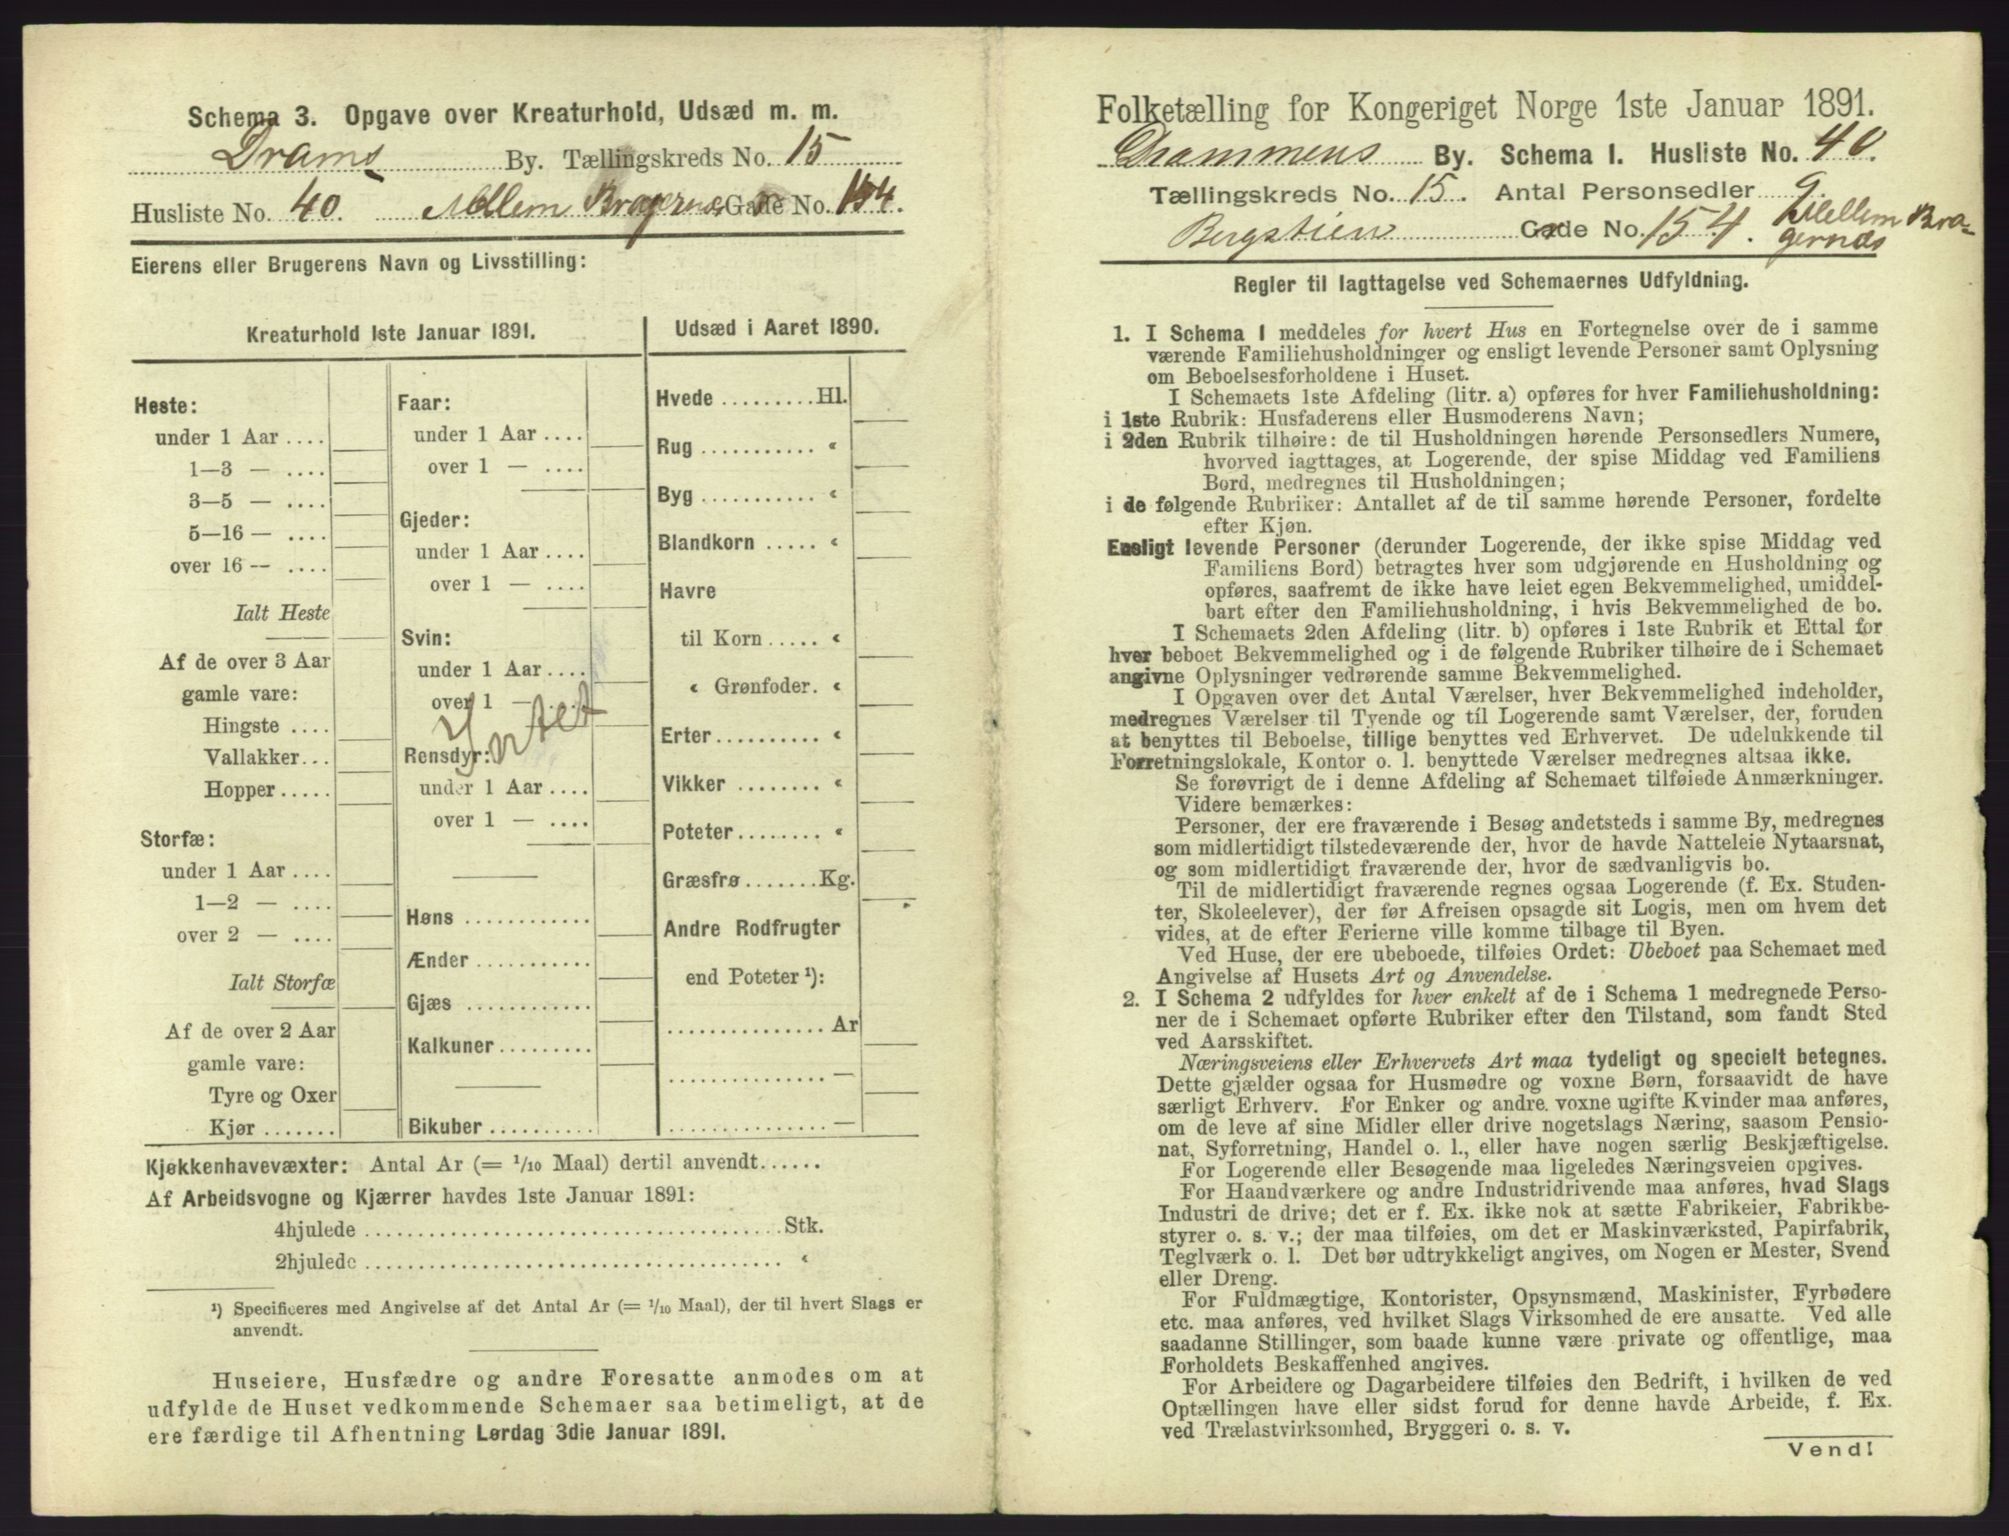 Schema 3. Opgave over Kreaturhold, Udsæd m. m.
Drams By. Tællingskreds No. 15
Husliste No. 40. Mellem Bragernæs Gade No. 154.
Eierens eller Brugerens Navn og Livsstilling:
Kreaturhold 1ste Januar 1891.
Heste:
under 1 Aar ....
1—3 — ....
3—5 — ....
5—16 — ....
over 16 — ....
Ialt Heste
Af de over 3 Aar
gamle vare:
Hingste ....
Vallakker...
Hopper.....
Storfæ:
under 1 Aar ....
1—2 — ....
over 2 — ....
Ialt Storfæ
Af de over 2 Aar
gamle vare:
Tyre og Oxer
Kjør .......
Faar:
under 1 Aar ....
over 1 — ....
Gjeder:
under 1 Aar ....
over 1 — ....
Svin:
under 1 Aar ....
over 1 — ....
Intet
Rensdyr:
under 1 Aar ....
over 1 — ....
Høns ............
Ænder ...........
Gjæs ............
Kalkuner.........
Bikuber ..........
Udsæd i Aaret 1890.
Hvede .........Hl.
Rug ........... «
Byg ........... «
Blandkorn ..... «
Havre
til Korn ..... «
« Grønfoder. «
Erter.......... «
Vikker ........ «
Poteter........ «
Græsfrø.......Kg.
Andre Rodfrugter
end Poteter ¹):
............... Ar
............... —
............... —
Kjøkkenhavevæxter: Antal Ar (= 1/10 Maal) dertil anvendt......
Af Arbeidsvogne og Kjærrer havdes 1ste Januar 1891:
4hjulede ........................................Stk.
2hjulede ........................................ «
¹) Specificeres med Angivelse af det Antal Ar (= 1/10 Maal), der til hvert Slags er
anvendt.
Huseiere, Husfædre og andre Foresatte anmodes om at
udfylde de Huset vedkommende Schemaer saa betimeligt, at de
ere færdige til Afhentning Lørdag 3die Januar 1891.
Folketælling for Kongeriget Norge 1ste Januar 1891.
Drammens By. Schema I. Husliste No. 40.
Tællingskreds No. 15. Antal Personsedler 9.
Bergstien Gade No. 154. Mellem Bra-
gernæs
Regler til Iagttagelse ved Schemaernes Udfyldning.
1. I Schema 1 meddeles for hvert Hus en Fortegnelse over de i samme
værende Familiehusholdninger og ensligt levende Personer samt Oplysning
om Beboelsesforholdene i Huset.
I Schemaets 1ste Afdeling (litr. a) opføres for hver Familiehusholdning:
i 1ste Rubrik: Husfaderens eller Husmoderens Navn;
i 2den Rubrik tilhøire: de til Husholdningen hørende Personsedlers Numere,
hvorved iagttages, at Logerende, der spise Middag ved Familiens
Bord, medregnes til Husholdningen;
i de følgende Rubriker: Antallet af de til samme hørende Personer, fordelte
efter Kjøn.
Ensligt levende Personer (derunder Logerende, der ikke spise Middag ved
Familiens Bord) betragtes hver som udgjørende en Husholdning og
opføres, saafremt de ikke have leiet egen Bekvemmelighed, umiddel-
bart efter den Familiehusholdning, i hvis Bekvemmelighed de bo.
I Schemaets 2den Afdeling (litr. b) opføres i 1ste Rubrik et Ettal for
hver beboet Bekvemmelighed og i de følgende Rubriker tilhøire de i Schemaet
angivne Oplysninger vedrørende samme Bekvemmelighed.
I Opgaven over det Antal Værelser, hver Bekvemmelighed indeholder,
medregnes Værelser til Tyende og til Logerende samt Værelser, der, foruden
at benyttes til Beboelse, tillige benyttes ved Erhvervet. De udelukkende til
Forretningslokale, Kontor o. l. benyttede Værelser medregnes altsaa ikke.
Se forøvrigt de i denne Afdeling af Schemaet tilføiede Anmærkninger.
Videre bemærkes:
Personer, der ere fraværende i Besøg andetsteds i samme By, medregnes
som midlertidigt tilstedeværende der, hvor de havde Natteleie Nytaarsnat,
og som midlertidigt fraværende der, hvor de sædvanligvis bo.
Til de midlertidigt fraværende regnes ogsaa Logerende (f. Ex. Studen-
ter, Skoleelever), der før Afreisen opsagde sit Logis, men om hvem det
vides, at de efter Ferierne ville komme tilbage til Byen.
Ved Huse, der ere ubeboede, tilføies Ordet: Ubeboet paa Schemaet med
Angivelse af Husets Art og Anvendelse.
2. I Schema 2 udfyldes for hver enkelt af de i Schema 1 medregnede Perso-
ner de i Schemaet opførte Rubriker efter den Tilstand, som fandt Sted
ved Aarsskiftet.
Næringsveiens eller Erhvervets Art maa tydeligt og specielt betegnes.
Dette gjælder ogsaa for Husmødre og voxne Børn, forsaavidt de have
særligt Erhverv. For Enker og andre voxne ugifte Kvinder maa anføres,
om de leve af sine Midler eller drive nogetslags Næring, saasom Pensio-
nat, Syforretning, Handel o. l., eller have nogen særlig Beskjæftigelse.
For Logerende eller Besøgende maa ligeledes Næringsveien opgives.
For Haandværkere og andre Industridrivende maa anføres, hvad Slags
Industri de drive; det er f. Ex. ikke nok at sætte Fabrikeier, Fabrikbe-
styrer o. s. v.; der maa tilføies, om det er Maskinværksted, Papirfabrik,
Teglværk o. l. Det bør udtrykkeligt angives, om Nogen er Mester, Svend
eller Dreng.
For Fuldmægtige, Kontorister, Opsynsmænd, Maskinister, Fyrbødere
etc. maa anføres, ved hvilket Slags Virksomhed de ere ansatte. Ved alle
saadanne Stillinger, som baade kunne være private og offentlige, maa
Forholdets Beskaffenhed angives.
For Arbeidere og Dagarbeidere tilføies den Bedrift, i hvilken de ved
Optællingen have eller sidst forud for denne havde Arbeide, f. Ex.
ved Trælastvirksomhed, Bryggeri o. s. v.
Vend!